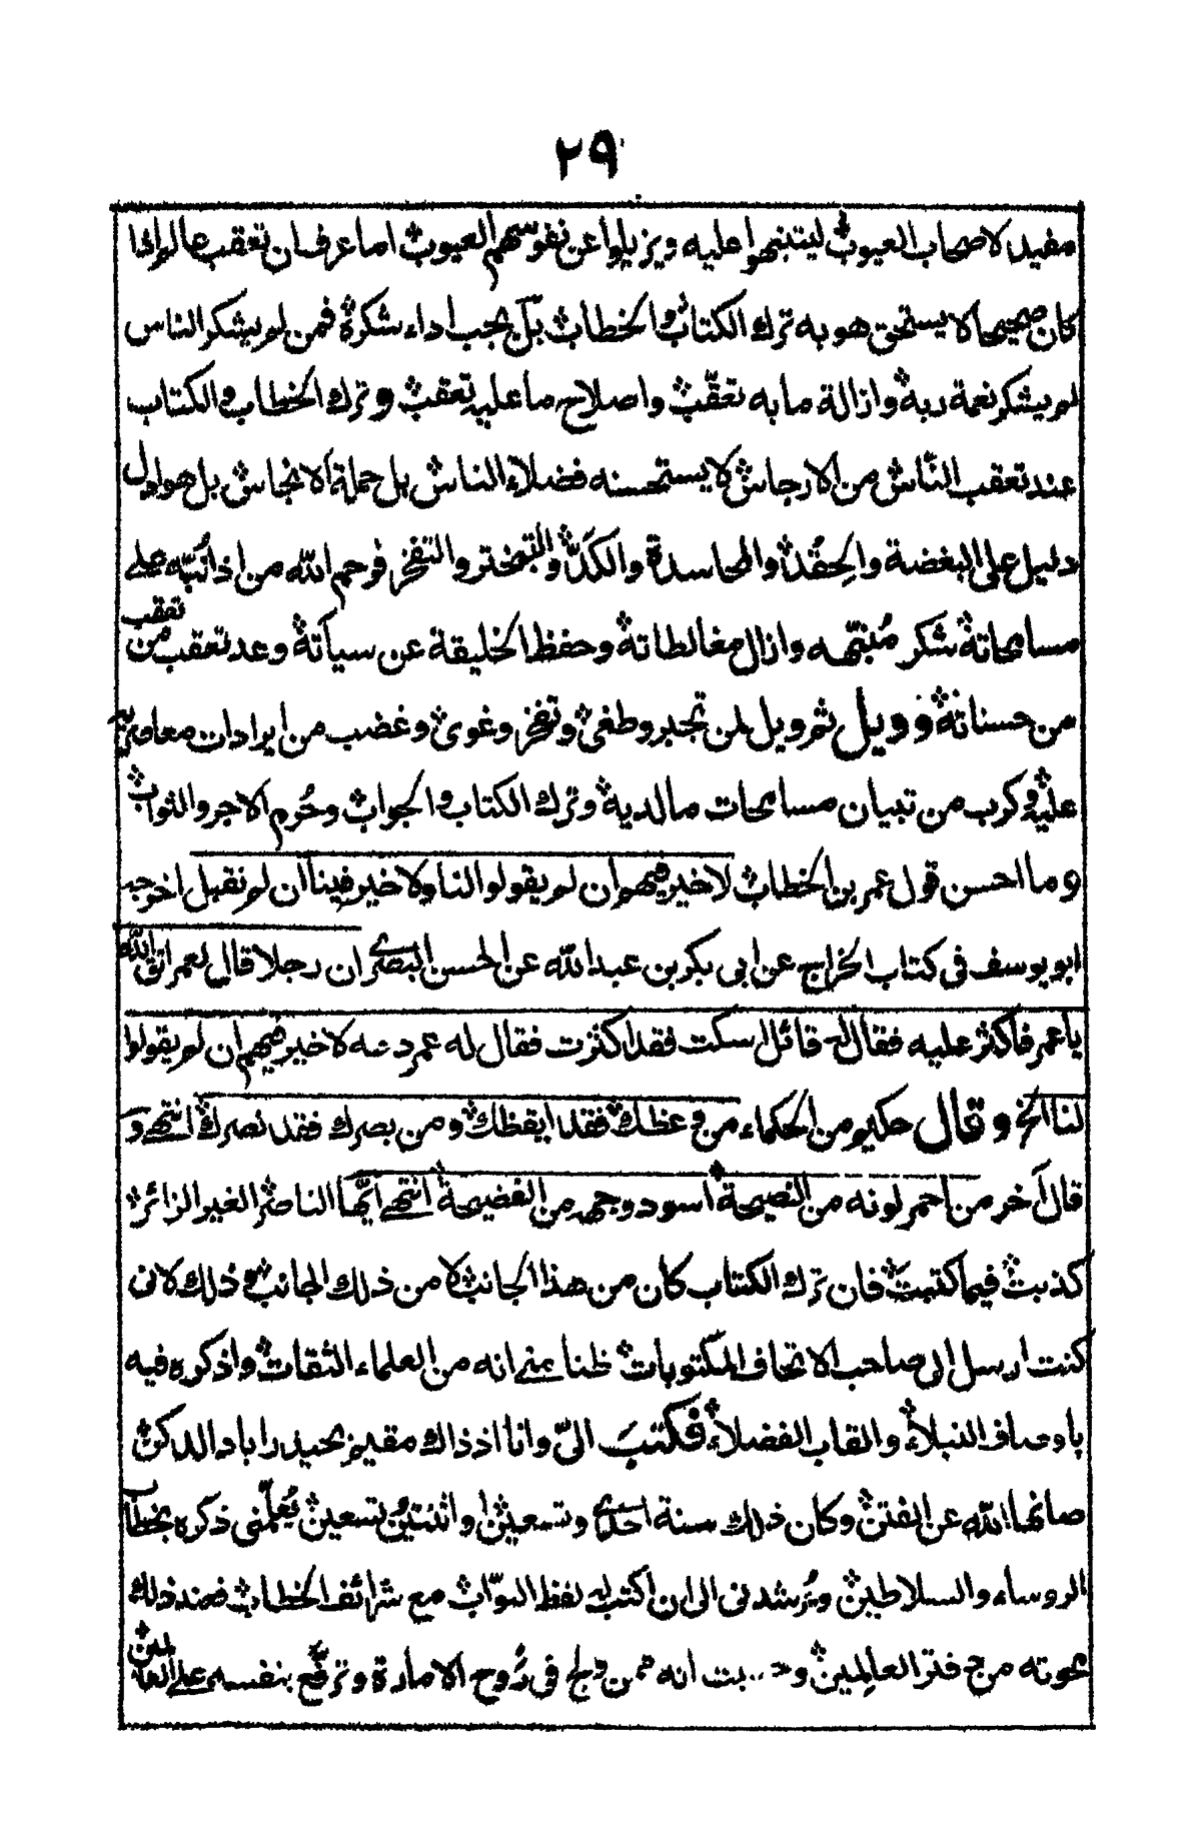 ٢٩
مفيد لاصحاب العيوب ليتنبهوا عليه ويزيلوا عن نفوسهم العيوب اما عرف ان تعقب عالم اذا
كان صحيحا لا يستحق هو به ترك الكتاب والخطاب بل يجب اداء شكره فمن لم يشكر الناس
لم يشكر نعمة ربه وازالة ما به تعقّب واصلاح ما عليه تعقب وترك الخطاب والكتاب
عند تعقب النّاس من الارجاس لا يستحسنه فضلاء الناس بل حملة الانجاس بل هو ادل
دليل على البغضة والحِقُد والمحاسدة والكَدّ والتبختر والتفخر فرحم الله من اذا نُبِّه على
مسامحاته شكر مُنبّهه وازال مغالطاته وحفظ الخليقة عن سيآته وعد تعقب من تعقب
من حسناته وويل ثم ويل لمن تجبر وطغى وتفخر وغوى وغضب من ايرادات معاصريه
عليه وكرب من تبيان مسامحات ما لديه وترك الكتاب والجواب وحُرم الاجر والثواب
وما احسن قول عمر بن الخطاب لا خير فيهم ان لم يقولوا لنا ولا خير فينا ان لم نقبل اخرجه
ابو يوسف فى كتاب الخراج عن ابى بكر بن عبد الله عن الحسن البصرى ان رجلا قال لعمر اتق الله
يا عمر فاكثر عليه فقال له قائل اسكت فقد اكثرت فقال له عمر دعه لا خير فيهم ان لم يقولوا
لنا الخ وقال حكيم من الحكماء من وعظك فقد ايقظك ومن بصرك فقد نصرك انتهى و
قال آخر من احمر لونه من النصيحة اسود وجهه من الفضيحة انتهى ايّها الناصر الغير الزائر
كذبت فيما كتبتَ فان ترك الكتاب كان من هذا الجانب لا من ذلك الجانب وذلك لانى
كنت ارسل الى صاحب الاتحاف المكتوبات ظنا منى انه من العلماء الثقات واذكره فيه
باوصاف النبلاء والقاب الفضلاء فكتبَ الىّ وانا اذ ذاك مقيم بحيدراباد الدكن
صانها الله عن الفتن وكان ذلك سنة احدى وتسعين او اثنتين وتسعين يُعلّمنى ذكره بخطاب
الروساء والسلاطين ويُرشدنى الى ان اكتب له لفظ النوّاب مع شرائف الخطاب فعند ذلك
محوته من دفتر العالِمين و بت انه ممن ولج فى رُوح الامارة وترفّع بنفسه على العالمين